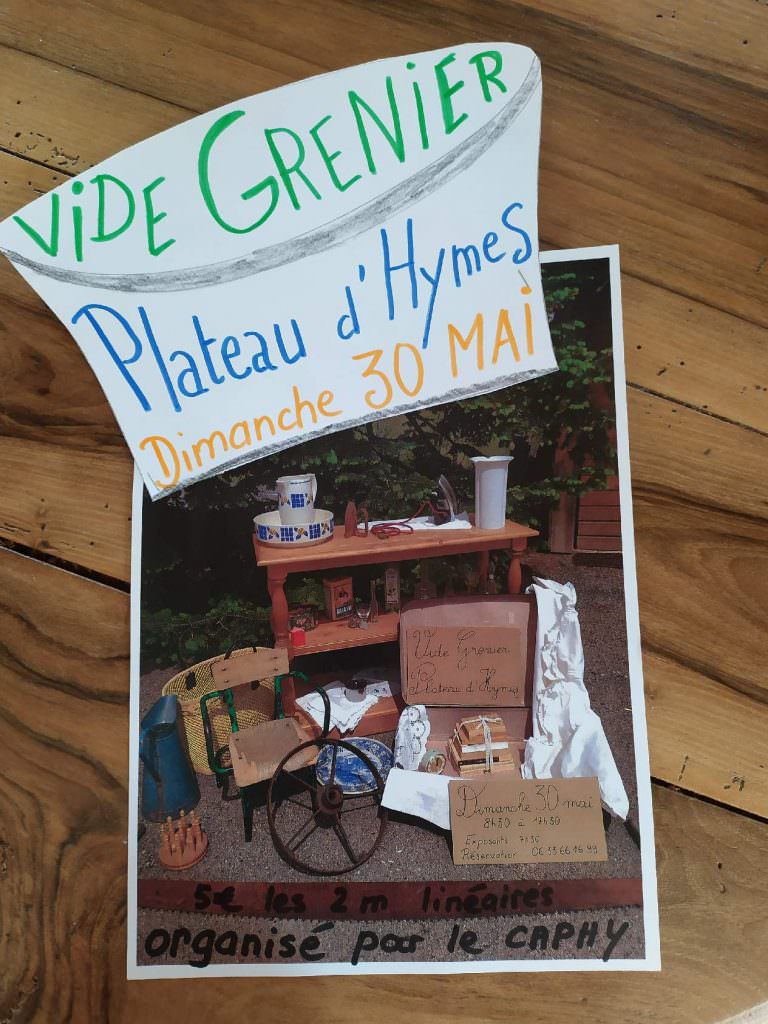 ViDE GRENiER
Plateau d'Hymes
Dimanche 30 MAi
Vide Grenier
Plateau d'Hymes
Dimanche 30 mai
8h30 à 17h30
Exposants 7h30
Réservation 06 33 66 16 99
5€ les 2 m linéaires
organisé par le CAPHY